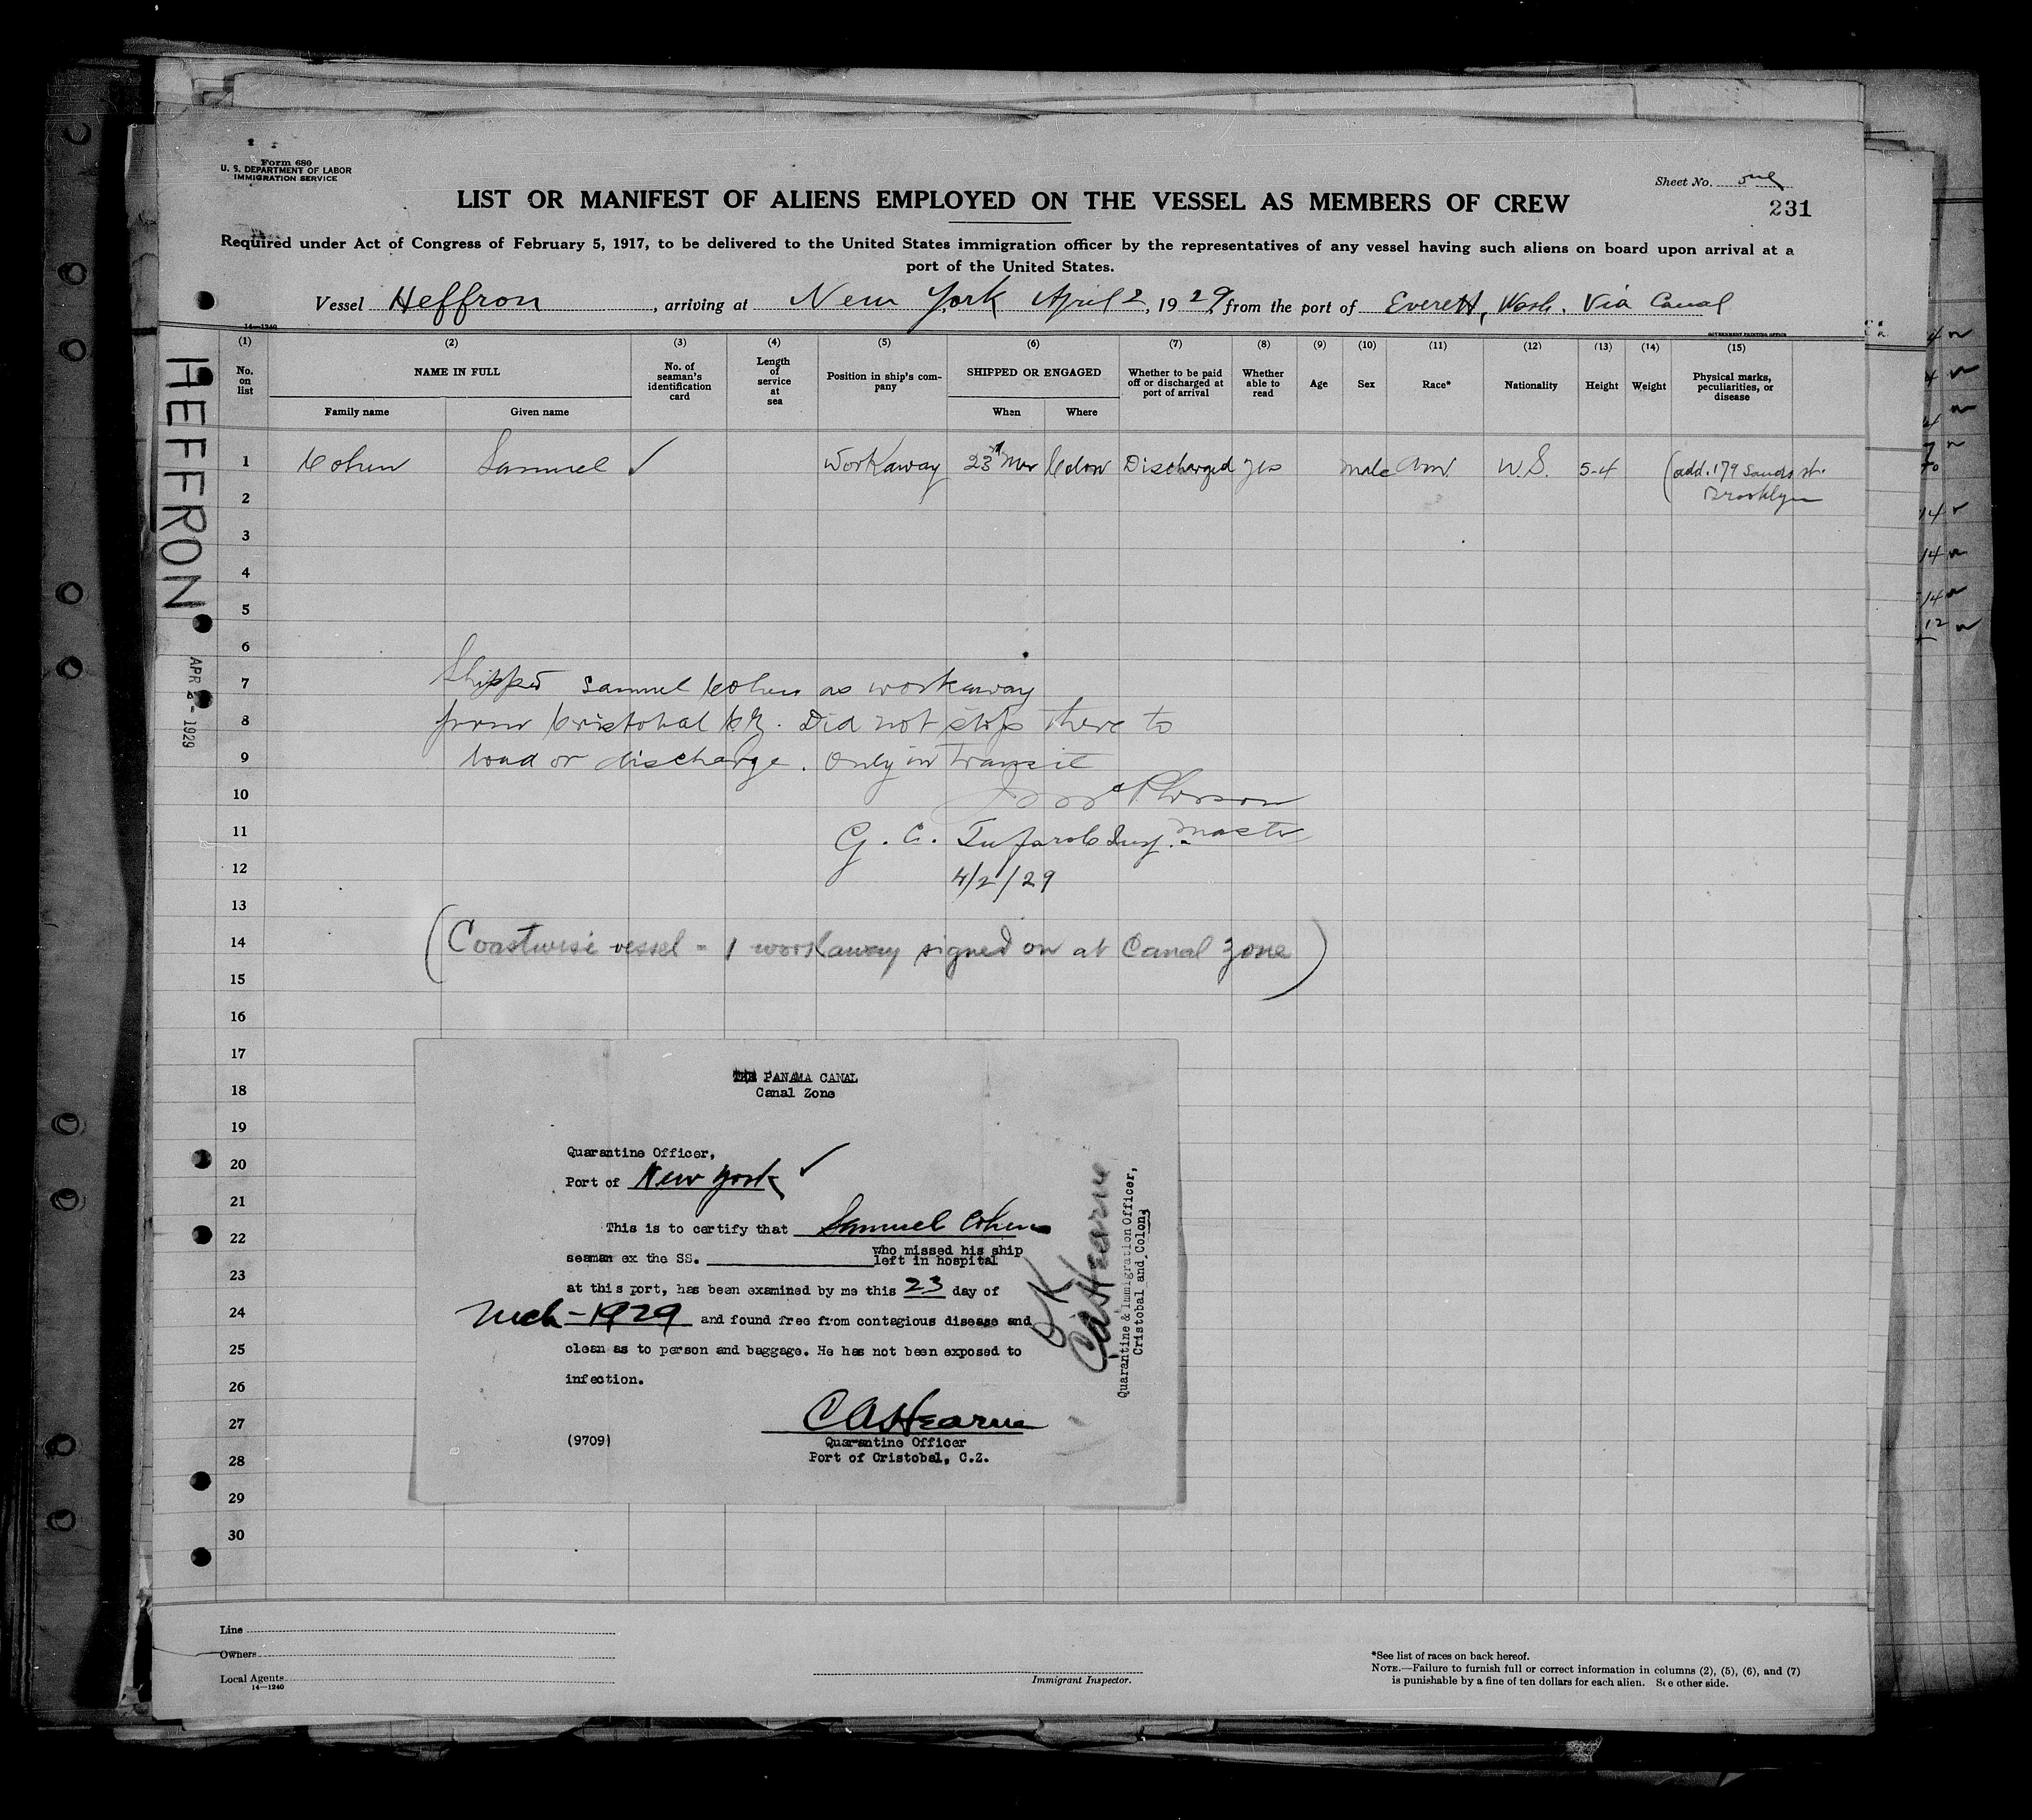 Form 680
U. S. DEPARTMENT OF LABOR
IMMIGRATION SERVICE
Sheet No. one
231
LIST OR MANIFEST OF ALIENS EMPLOYED ON THE VESSEL AS MEMBERS OF CREW
Required under Act of Congress of February 5, 1917, to be delivered to the United States immigration officer by the representatives of any vessel having such aliens on board upon arrival at a
port of the United States.
Vessel Heffron, arriving at New York April 2, 1929, from the port of Everett, Wash. Via Canal
14—1240
GOVERNMENT PRINTING OFFICE
(1) (2) (3) (4) (5) (6) (7) (8) (9) (10) (11) (12) (13) (14) (15)
No. on list
NAME IN FULL
Family name
Given name
No. of seaman's identification card
Length of service at sea
Position in ship's company
SHIPPED OR ENGAGED
When
Where
Whether to be paid off or discharged at port of arrival
Whether able to read
Age
Sex
Race*
Nationality
Height
Weight
Physical marks, peculiarities, or disease
1 Cohen Samuel ✓ Workaway 23 Mar Colon Discharged yes male Am. U.S. 5-4 (add. 179 Sands st.
2 Brooklyn
3
4
5
6
7 Shipped Samuel Cohen as workaway
8 from Cristobal C.Z. Did not stop there to
9 load or discharge. Only in Transit
10
11 G. C. Insp. Master
12 4/2/29
13
14 (Coastwise vessel - 1 workaway signed on at Canal Zone)
15
16
17
18
19
20
21
22
23
24
25
26
27
28
29
30
HEFFRON
APR 2 - 1929
THE PANAMA CANAL
Canal Zone
Quarantine Officer,
Port of New York ✓
This is to certify that Samuel Cohen
seaman ex the SS. who missed his ship
left in hospital
at this port, has been examined by me this 23 day of
Mch - 1929 and found free from contagious disease and
clean as to person and baggage. He has not been exposed to
infection.
CA Hearne
(9709)
Quarantine Officer
Port of Cristobal, C.Z.
OK
CA Hearne
Quarantine & Immigration Officer,
Cristobal and Colon.
Line
Owners
Local Agents
14—1240
Immigrant Inspector.
*See list of races on back hereof.
NOTE.—Failure to furnish full or correct information in columns (2), (5), (6), and (7)
is punishable by a fine of ten dollars for each alien. See other side.